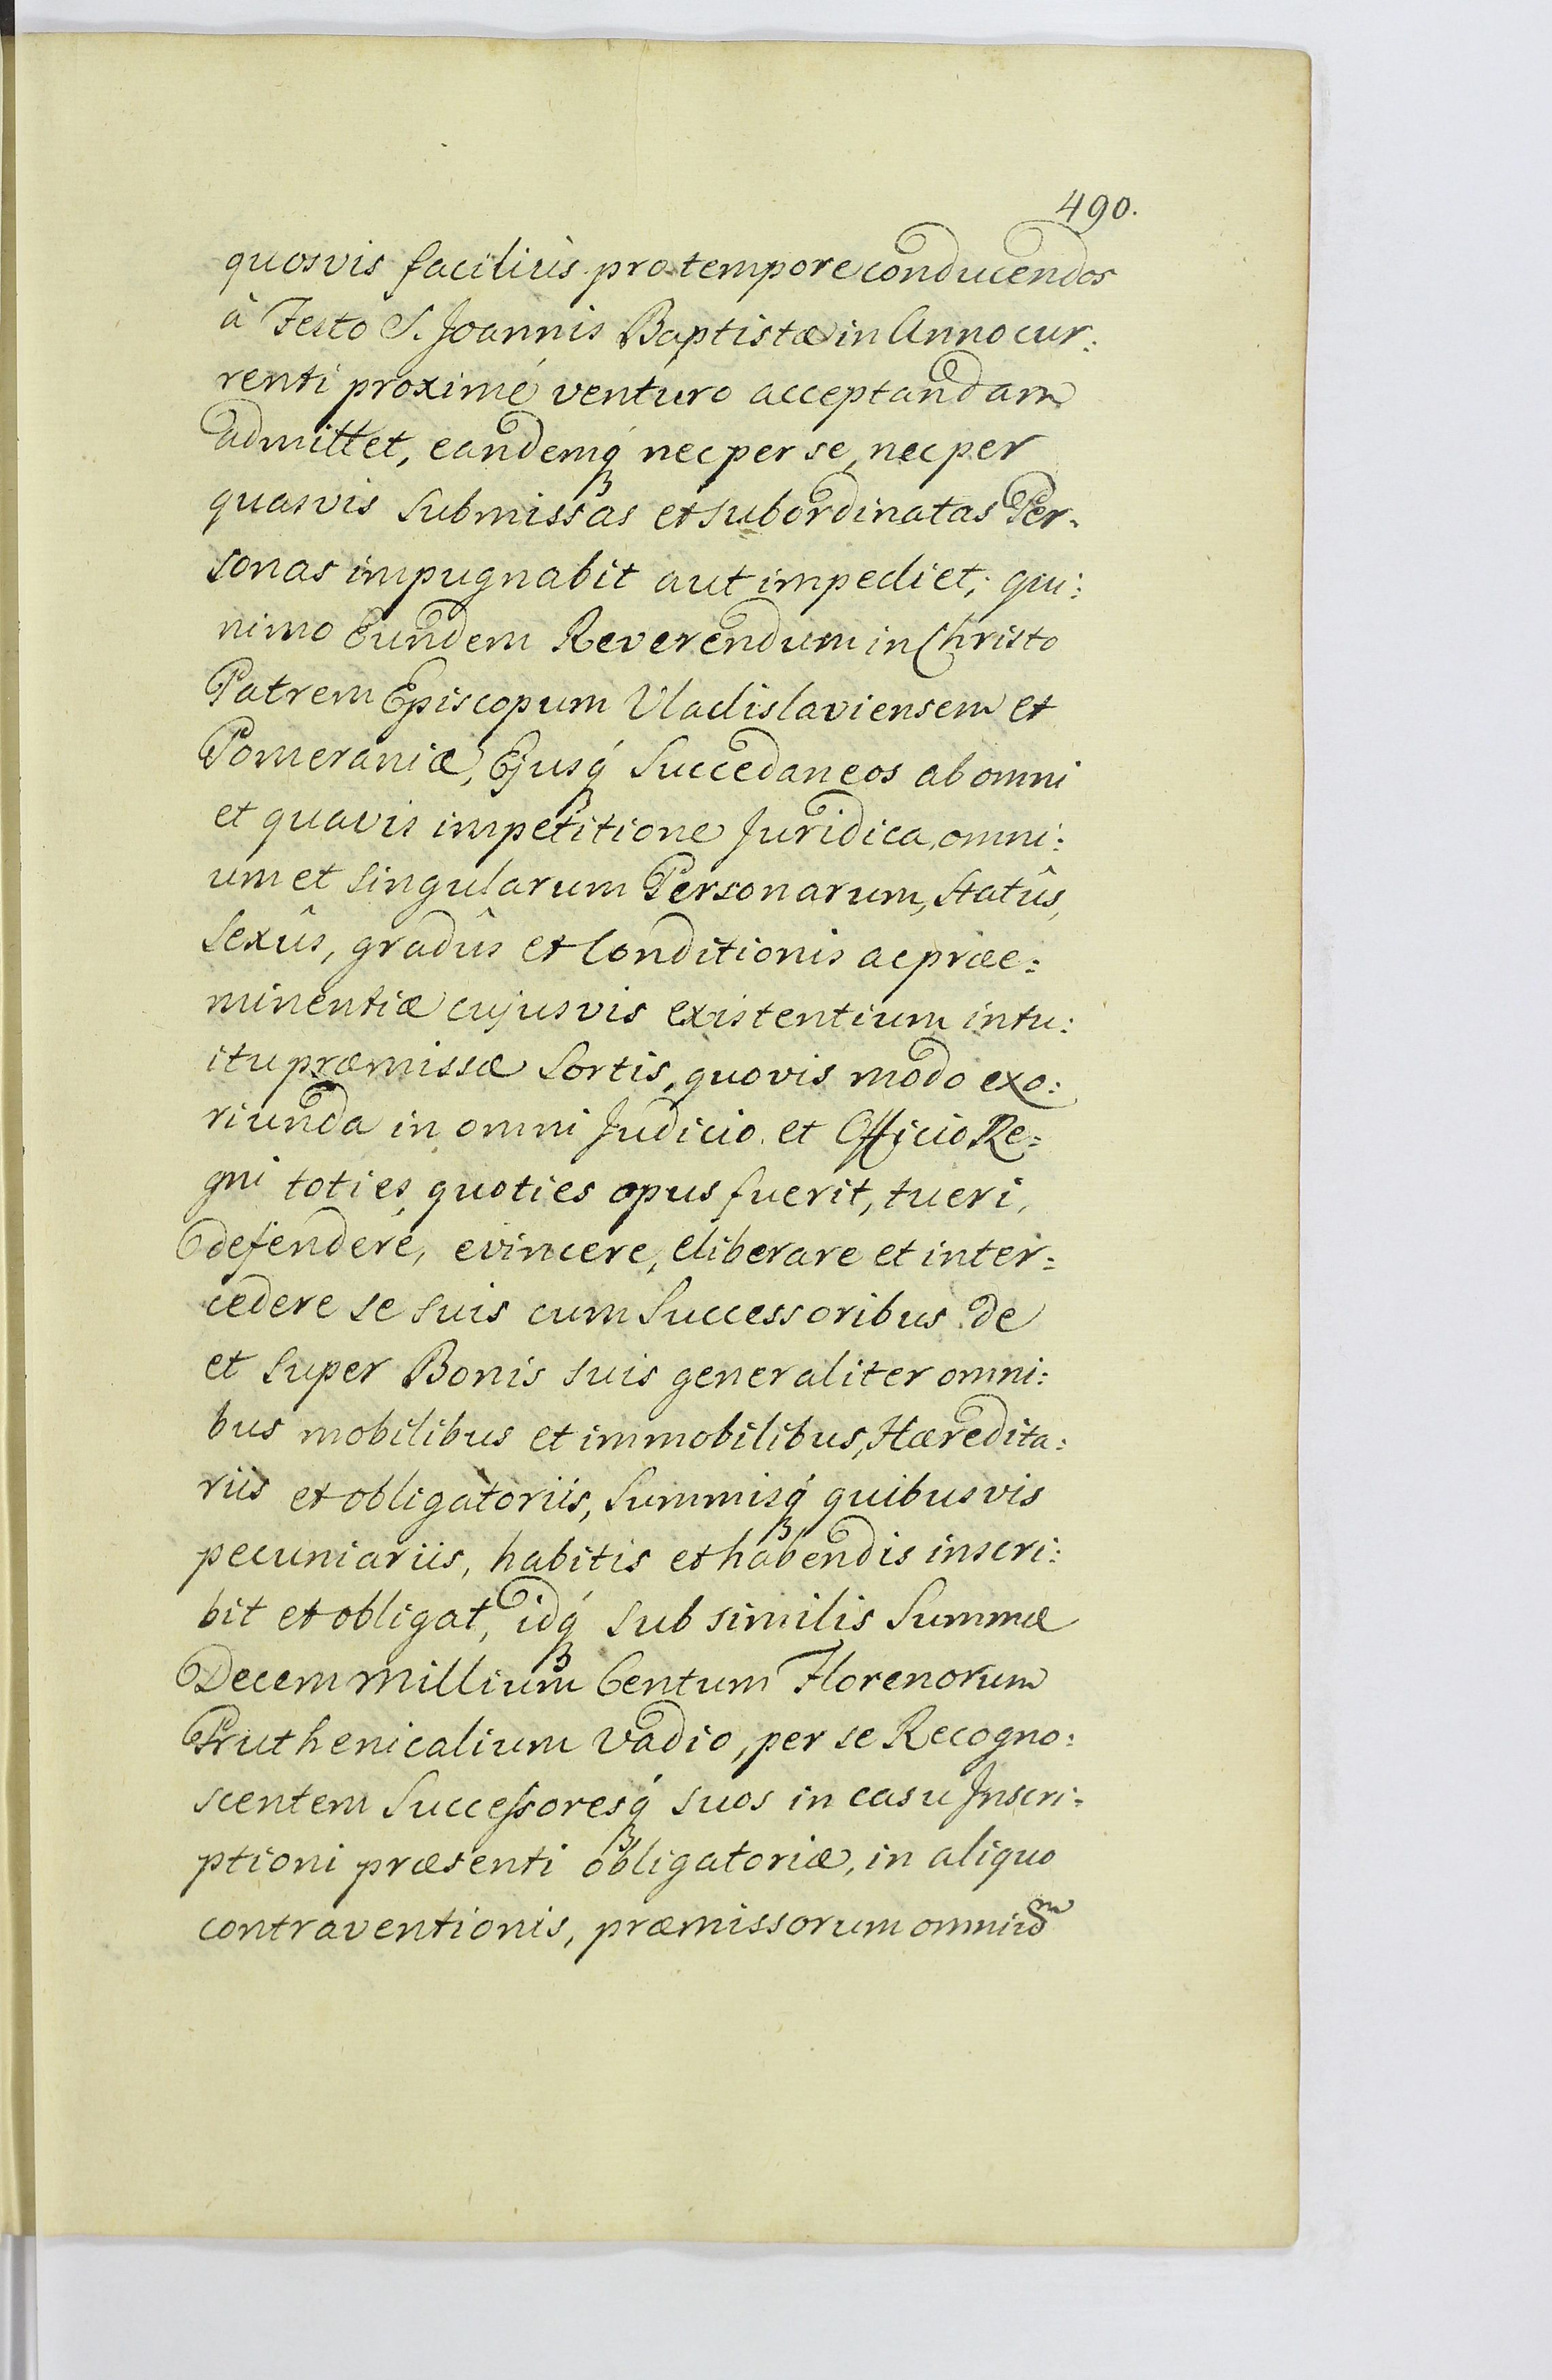 490.
quosvis faciliùs pro tempore conducendos
à Festo S. Joannis Baptistæ in Anno cur:
renti proximé venturo acceptandam
admittet, eandemq́ꝫ nec per se, nec per
quasvis submissas et subordinatas Per:
sonas impugnabit aut impediet; qui:
nimo Eundem Reverendum in Christo
Patrem Episcopum Vladislaviensem et
Pomeraniæ, Ejusq́ꝫ Succedaneos ab omni
et quavis impetitione Juridica, omni:
um et singularum Personarum, Statûs,
Sexûs, gradûs et Conditionis ac præe:
minentiæ cujusvis existentium intu:
itu præmissæ Sortis, quovis modo exo:
riunda in omni Judicio et Officio Re:
gni toties, quoties opus fuerit, tueri,
defendere, evincere, eliberare et inter:
cedere se suis cum Successoribus de
et super Bonis suis generaliter omni:
bus mobilibus et immobilibus, Hæredita:
riis et obligatoriis, Summisq́ꝫ quibusvis
pecuniariis, habitis et habendis inscri:
bit et obligat, idq́ꝫ sub similis Summæ
Decem Millium Centum Florenorum
Pruthenicalium vadio, per se Recogno:
scentem Successoresq́ꝫ suos in casu Inscri:
ptioni præsenti obligatoriæ, in aliquo
contraventionis, præmissorum omniuᵐ